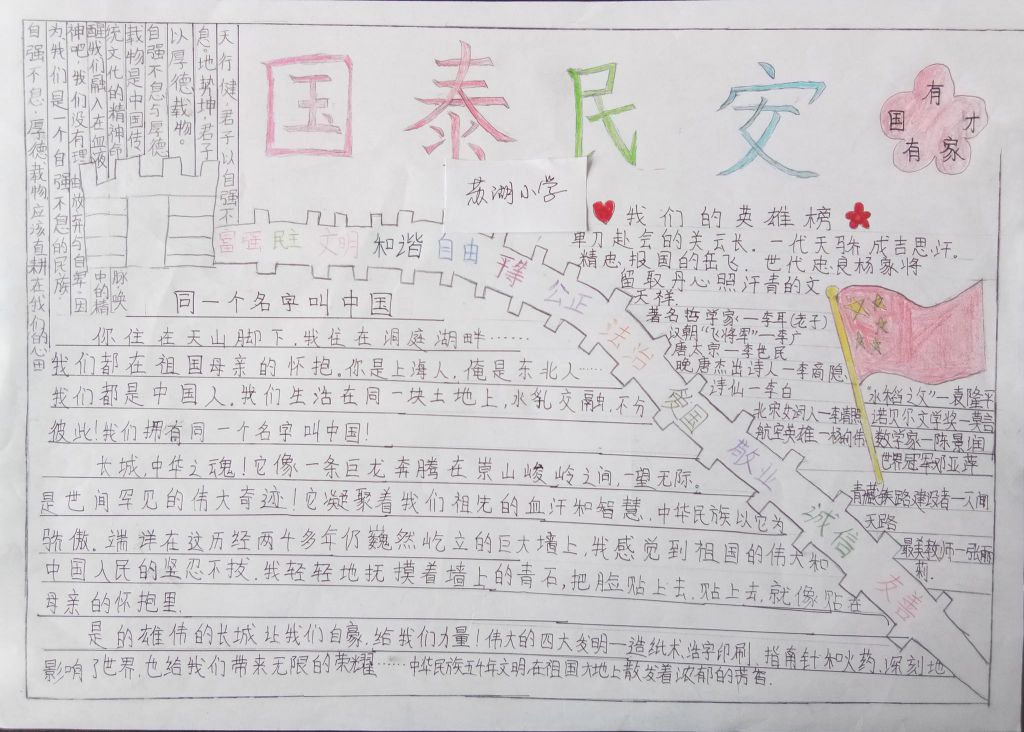 国泰民安
苏湖小学
有
国
才
有
家
天行健,君子以自强不
息。地势坤,君子
以厚德载物。
自强不息与厚德
载物是中国传
统文化的精神命
脉。唤
醒我们融入在血液
中的精
神吧,我们没有理由放弃与自卑,因
为我们是一个自强不息的民族,
自强不息,厚德载物应该直耕在我们的心田
富强 民主 文明 和谐 自由 平等 公正 法治 爱国 敬业 诚信 友善
同一个名字叫中国
你住在天山脚下,我住在洞庭湖畔……
我们都在祖国母亲的怀抱。你是上海人,俺是东北人……
我们都是中国人,我们生活在同一块土地上,水乳交融,不分
彼此!我们拥有同一个名字叫中国!
长城,中华之魂!它像一条巨龙奔腾在崇山峻岭之间,一望无际。
是世间罕见的伟大奇迹!它凝聚着我们祖先的血汗和智慧,中华民族以它为
骄傲。端详在这历经两千多年仍巍然屹立的巨大墙上,我感觉到祖国的伟大和
中国人民的坚忍不拔.我轻轻地抚摸着墙上的青石,把脸贴上去.贴上去,就像贴在
母亲的怀抱里.
是的雄伟的长城让我们自豪.给我们力量!伟大的四大发明—造纸术.活字印刷.指南针和火药.深刻地
影响了世界.也给我们带来无限的荣耀……中华民族五千年文明.在祖国大地上散发着浓郁的芳香.
我们的英雄榜
单刀赴会的关云长.一代天骄成吉思汗。
精忠报国的岳飞.世代忠良杨家将
留取丹心照汗青的文
天祥.
著名哲学家—李耳(老子)
汉朝“飞将军”—李广
唐太宗—李世民
晚唐杰出诗人—李商隐
诗仙—李白
北宋女词人—李清照
航空英雄—杨利伟
“水稻之父”—袁隆平
诺贝尔文学奖—莫言
数学家—陈景润
世界冠军邓亚萍
青藏铁路建设者—天闻
天路
最美教师—张丽
莉.